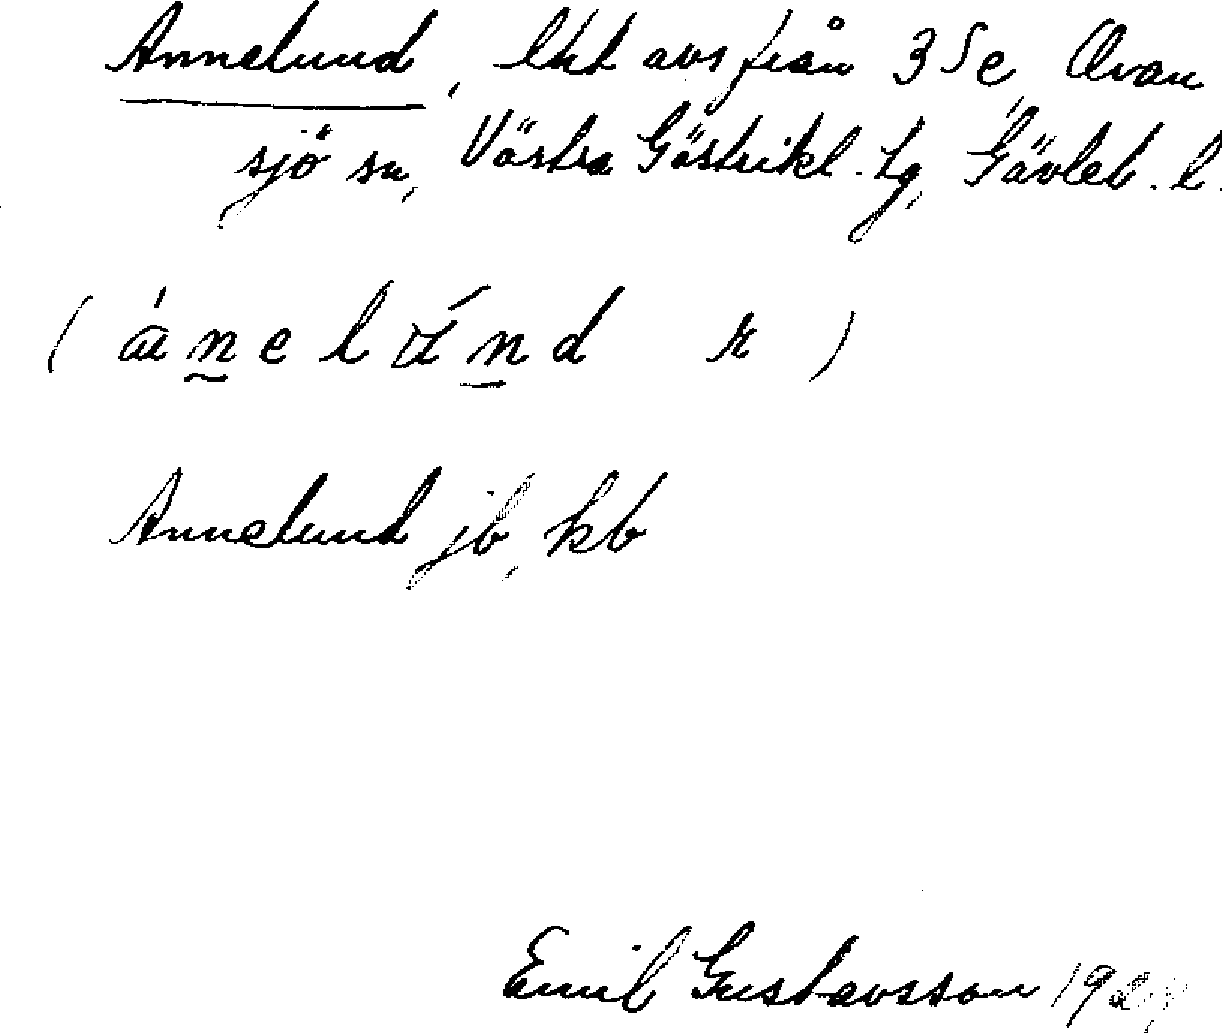 Annelund, lht avs från 3 5e, Ovan
sjö sn, Västra Gästrikl. tg, Gävleb. l.
Annelund jb, kb
Emil Gustavsson